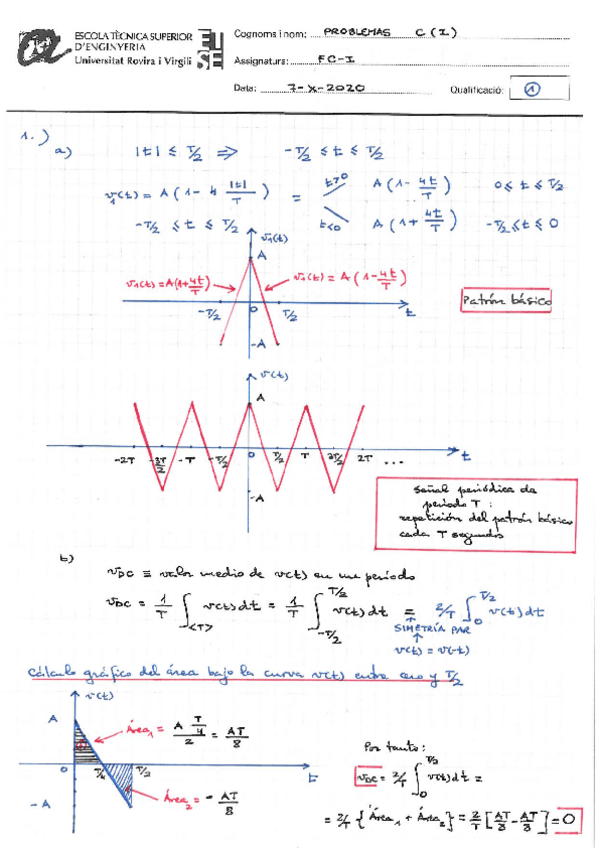 ESCOLA TÈCNICA SUPERIOR
D'ENGINYERIA
Universitat Rovira i Virgili
Cognoms i nom: PROBLEMAS C(I)
Assignatura: FC-I
Data: 7-X-2020
Qualificació: 1
1.)
a) |t| ≤ T/2 ⇒ -T/2 ≤ t ≤ T/2
v₁(t) = A(1 - 4 |t|/T) = t>0 A(1 - 4t/T) 0 ≤ t ≤ T/2
-T/2 ≤ t ≤ T/2 t<0 A(1 + 4t/T) -T/2 ≤ t ≤ 0
v₁(t)
A
v₁(t) = A(1 + 4t/T) v₁(t) = A(1 - 4t/T)
Patrón básico
-T/2 0 T/2 t
-A
v(t)
A
-2T -3T/2 -T -T/2 0 T/2 T 3T/2 2T ... t
-A
Señal periódica de
periodo T :
repetición del patrón básico
cada T segundos
b)
v_DC ≡ valor medio de v(t) en un periodo
v_DC = 1/T ∫<T> v(t) dt = 1/T ∫-T/2 T/2 v(t) dt = 2/T ∫0 T/2 v(t) dt
SIMETRÍA PAR
v(t) = v(-t)
Cálculo gráfico del área bajo la curva v(t) entre cero y T/2
v(t)
A
Área₁ = A T/4 / 2 = AT/8
0 T/4 T/2 t
-A
Área₂ = - AT/8
Por tanto:
v_DC = 2/T ∫0 T/2 v(t) dt =
= 2/T {Área₁ + Área₂} = 2/T [AT/8 - AT/8] = 0